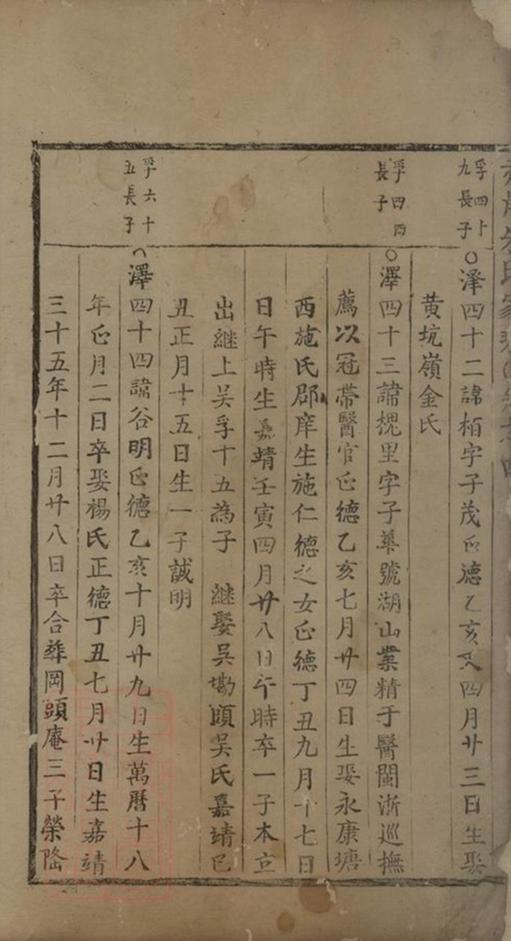 孚四十
九長子
澤四十二諱栢字子茂正德乙亥又四月廿三日生娶
黄坑嶺金氏
孚四四
長子
澤四十三諱槐里字子華號湖山業精于醫閩浙巡撫
薦以冠帶醫官正德乙亥七月廿四日生娶永康塘
西施氏郡庠生施仁德之女正德丁丑九月十七日
日午時生嘉靖壬寅四月廿八日午時卒一子本立
出継上吴孚十五為子 継娶吴塘頭吴氏嘉靖巳
丑正月十五日生一子誠明
孚六十
五長子
澤四十四諱谷明正德乙亥十月廿九日生萬曆十八
年正月二日卒娶楊氏正德丁丑七月廿日生嘉靖
三十五年十二月廿八日卒合葬岡頭庵三子榮隆